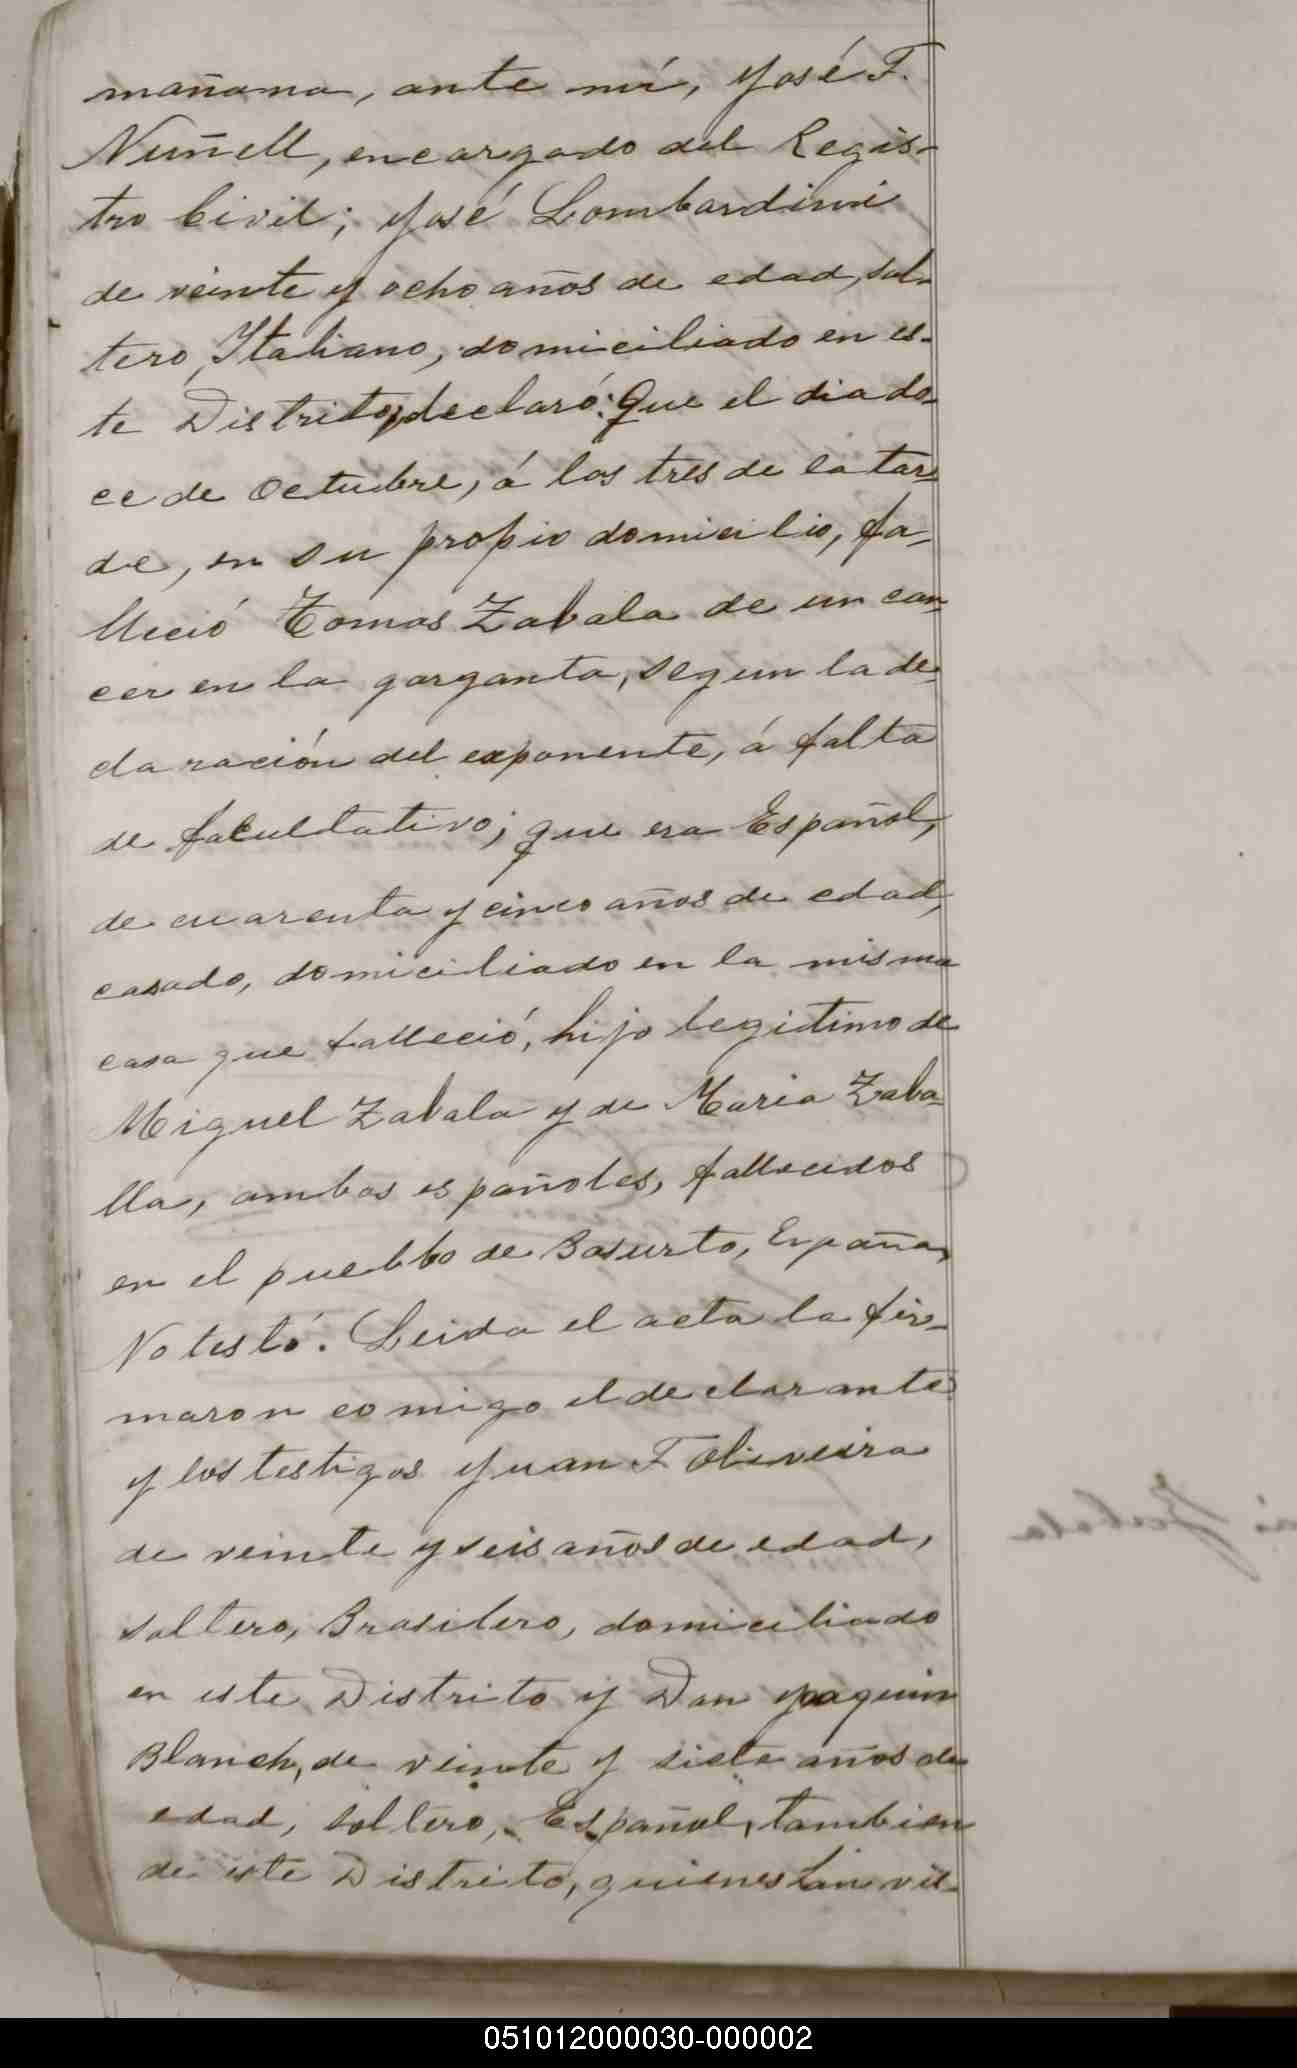 mañana, ante mí, José F.
Nuñell, encargado del Regis-
tro Civil; José Lombardini
de veinte y ocho años de edad, sol-
tero, Italiano, domiciliado en es-
te Distrito, declaró: Que el dia do-
ce de Octubre, á las tres de la tar-
de, en su propio domicilio, fa-
lleció Tomas Zabala de un can-
cer en la garganta, segun la de-
claración del exponente, á falta
de facultativo; que era Español,
de cuarenta y cinco años de edad,
casado, domiciliado en la misma
casa que falleció, hijo legitimo de
Miguel Zabala y de Maria Zaba-
lla, ambos españoles, fallecidos
en el pueblo de Basurto, España,
No testó. Leida el acta la fir-
maron comigo el declarante
y los testigos Juan F Oliveira
de veinte y seis años de edad,
soltero, Brasilero, domiciliado
en este Distrito y Don Joaquin
Blanch, de veinte y siete años de
edad, soltero, Español, tambien
de este Distrito, quienes han vis-
051012000030-000002